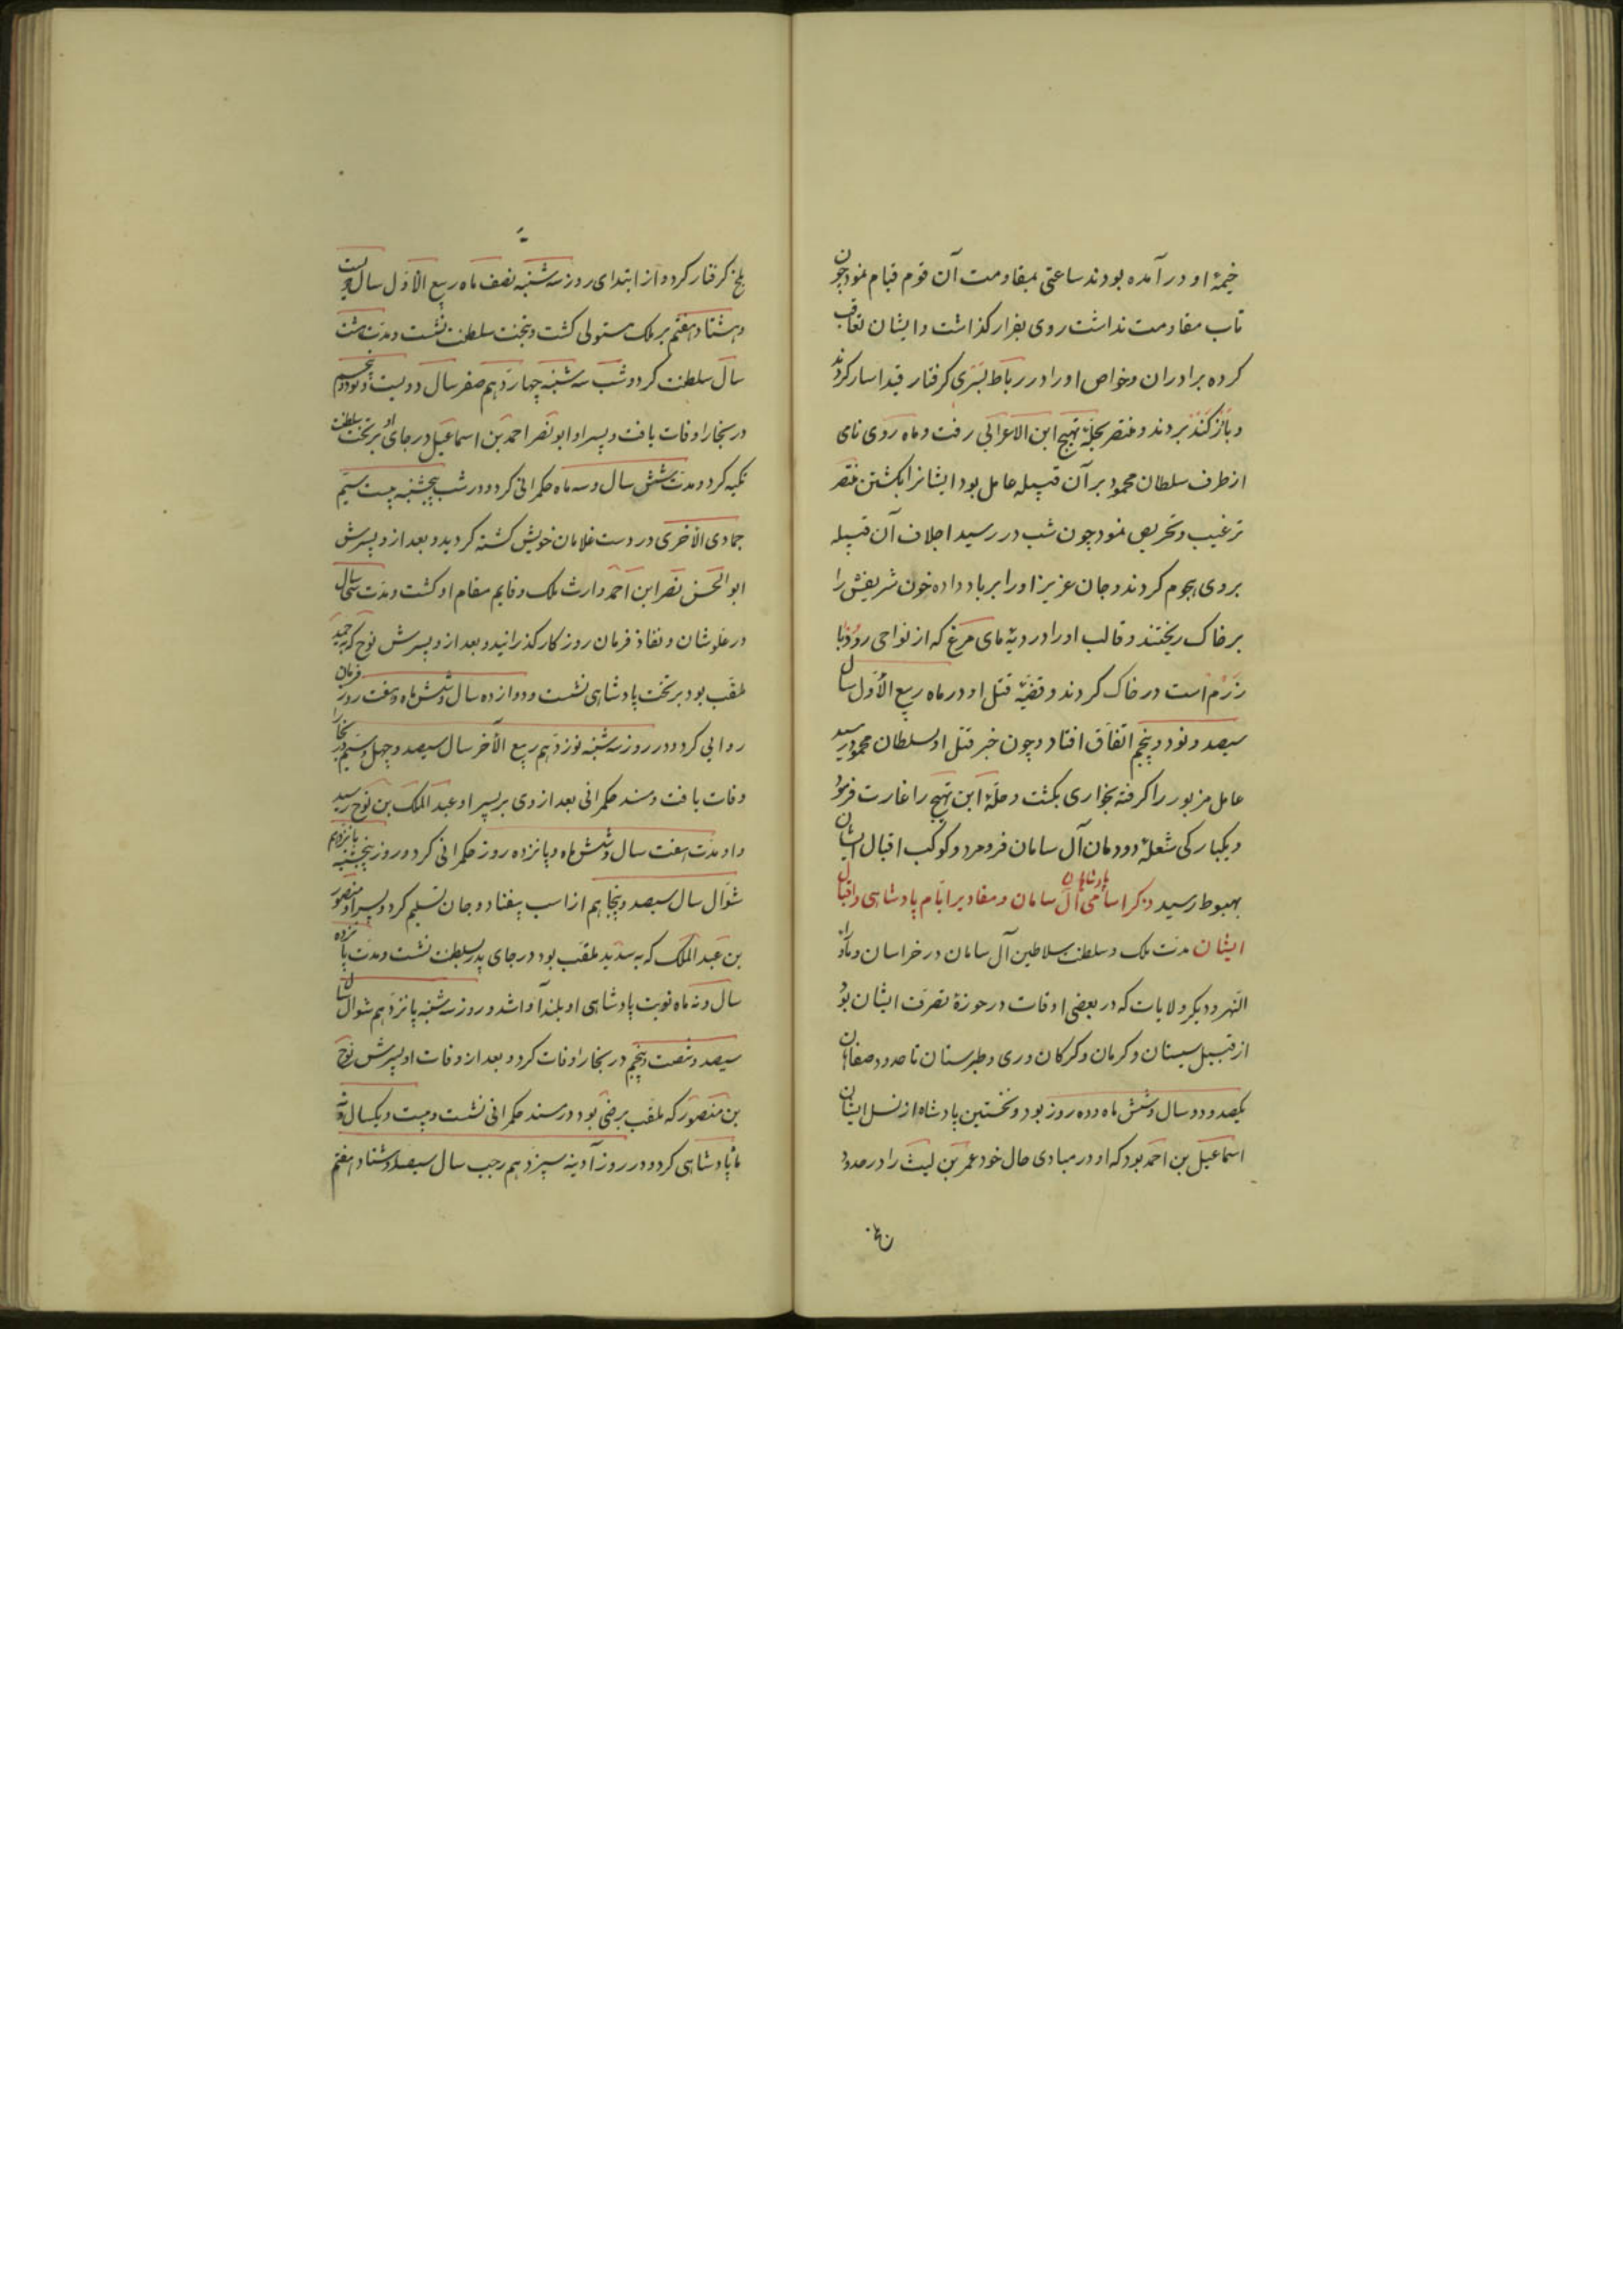 خیمهٔ او در آمده بودند ساعتی بمقاومت آن قوم قیام نمود چون
تاب مقاومت نداشت روی بفرار گذاشت و ایشان تعاقب
کرده برادران و خواص او را در رباط بشری گرفتار قید اسار کردند
و باز کند بردند و منتصر بحلهٔ بهیج ابن الاعرابی رفت و ماه روی نامی
از طرف سلطان محمود بر آن قبیله عامل بود ایشانرا بکشتن منتصر
ترغیب و تحریص نمود چون شب در رسید اجلاف آن قبیله
بروی هجوم کردند و جان عزیز او را بر باد داده خون شریفش را
بر خاک ریختند و قالب او را در دیه مای مرغ که از نواحی رودبار
زرم است در خاک کردند و قضیهٔ قتل او در ماه ربیع الاول سال
سیصد و نود و پنجم اتفاق افتاد و چون خبر قتل او بسلطان محمود رسید
عامل مزبور را گرفته بخواری بکشت و حلهٔ ابن بهیج را غارت فرمود
و یکبارکی شعلهٔ دودمان آل سامان فرو مرد و کوکب اقبال ایشان
بهبوط رسید ذکر اسامی پادشاهان آل سامان و مقادیر ایام پادشاهی و اقبال
ایشان مدت ملک و سلطنت سلاطین آل سامان در خراسان و ماوراء
النهر و دیگر ولایات که در بعضی اوقات در حوزهٔ تصرف ایشان بود
از قبیل سیستان و کرمان و کرکان و ری و طبرستان تا حدود صفاهان
یکصد و دو سال و شش ماه و ده روز بود و نخستین پادشاه از نسل ایشان
اسماعیل بن احمد بود که او در مبادی حال خود عمر بن لیث را در حدود
بلخ گرفتار کرد و از ابتدای روز سه شنبه نصف ماه ربیع الاول سال دویست
و هشتاد و هفتم بر ملک مستولی کشت و بتخت سلطنت نشست و مدت هشت
سال سلطنت کرد و شب سه شنبه چهاردهم صفر سال دویست و نود و پنجم
در بخارا وفات یافت و پسر او ابو نصر احمد بن اسماعیل در جای او بر تخت سلطنت
تکیه کرد و مدت شش سال و سه ماه حکمرانی کرد و در شب پنجشنبه بیست سیم
جمادی الاخری در دست غلامان خویش کشته کردید و بعد از و پسرش
ابو الحسن نصر ابن احمد وارث ملک و قایم مقام او کشت و مدت سی سال
در علو شان و نفاذ فرمان روزکار گذرانید و بعد از و پسرش نوح که به حمید
ملقب بود بر تخت پادشاهی نشست و دوازده سال و شش ماه و هفت روز فرمان
روایی کرد و در روز سه شنبه نوزدهم ربیع الآخر سال سیصد و چهل و سیم در بخارا
وفات یافت و مسند حکمرانی بعد از وی بر پسر او عبد الملک بن نوح رسید
و او مدت هفت سال و شش ماه و پانزده روز حکمرانی کرد و روز پنجشنبه یازدهم
شوال سال سیصد و پنجاهم از اسب بیفتاد و جان تسلیم کرد و پسر او منصور
بن عبد الملک که به سدید ملقب بود در جای پدر بسلطنت نشست و مدت پانزده
سال و نه ماه نوبت پادشاهی او بلند آوا شد و روز سه شنبه یانزدهم شوال سال
سیصد و شصت و پنجم در بخارا وفات کرد و بعد از وفات او پسرش نوح
بن منصور که ملقب برضی بود در مسند حکمرانی نشست و بیست و یکسال و نه
ماه پادشاهی کرد و در روز آدینه سیزدهم رجب سال سیصد و هشتاد و هفتم